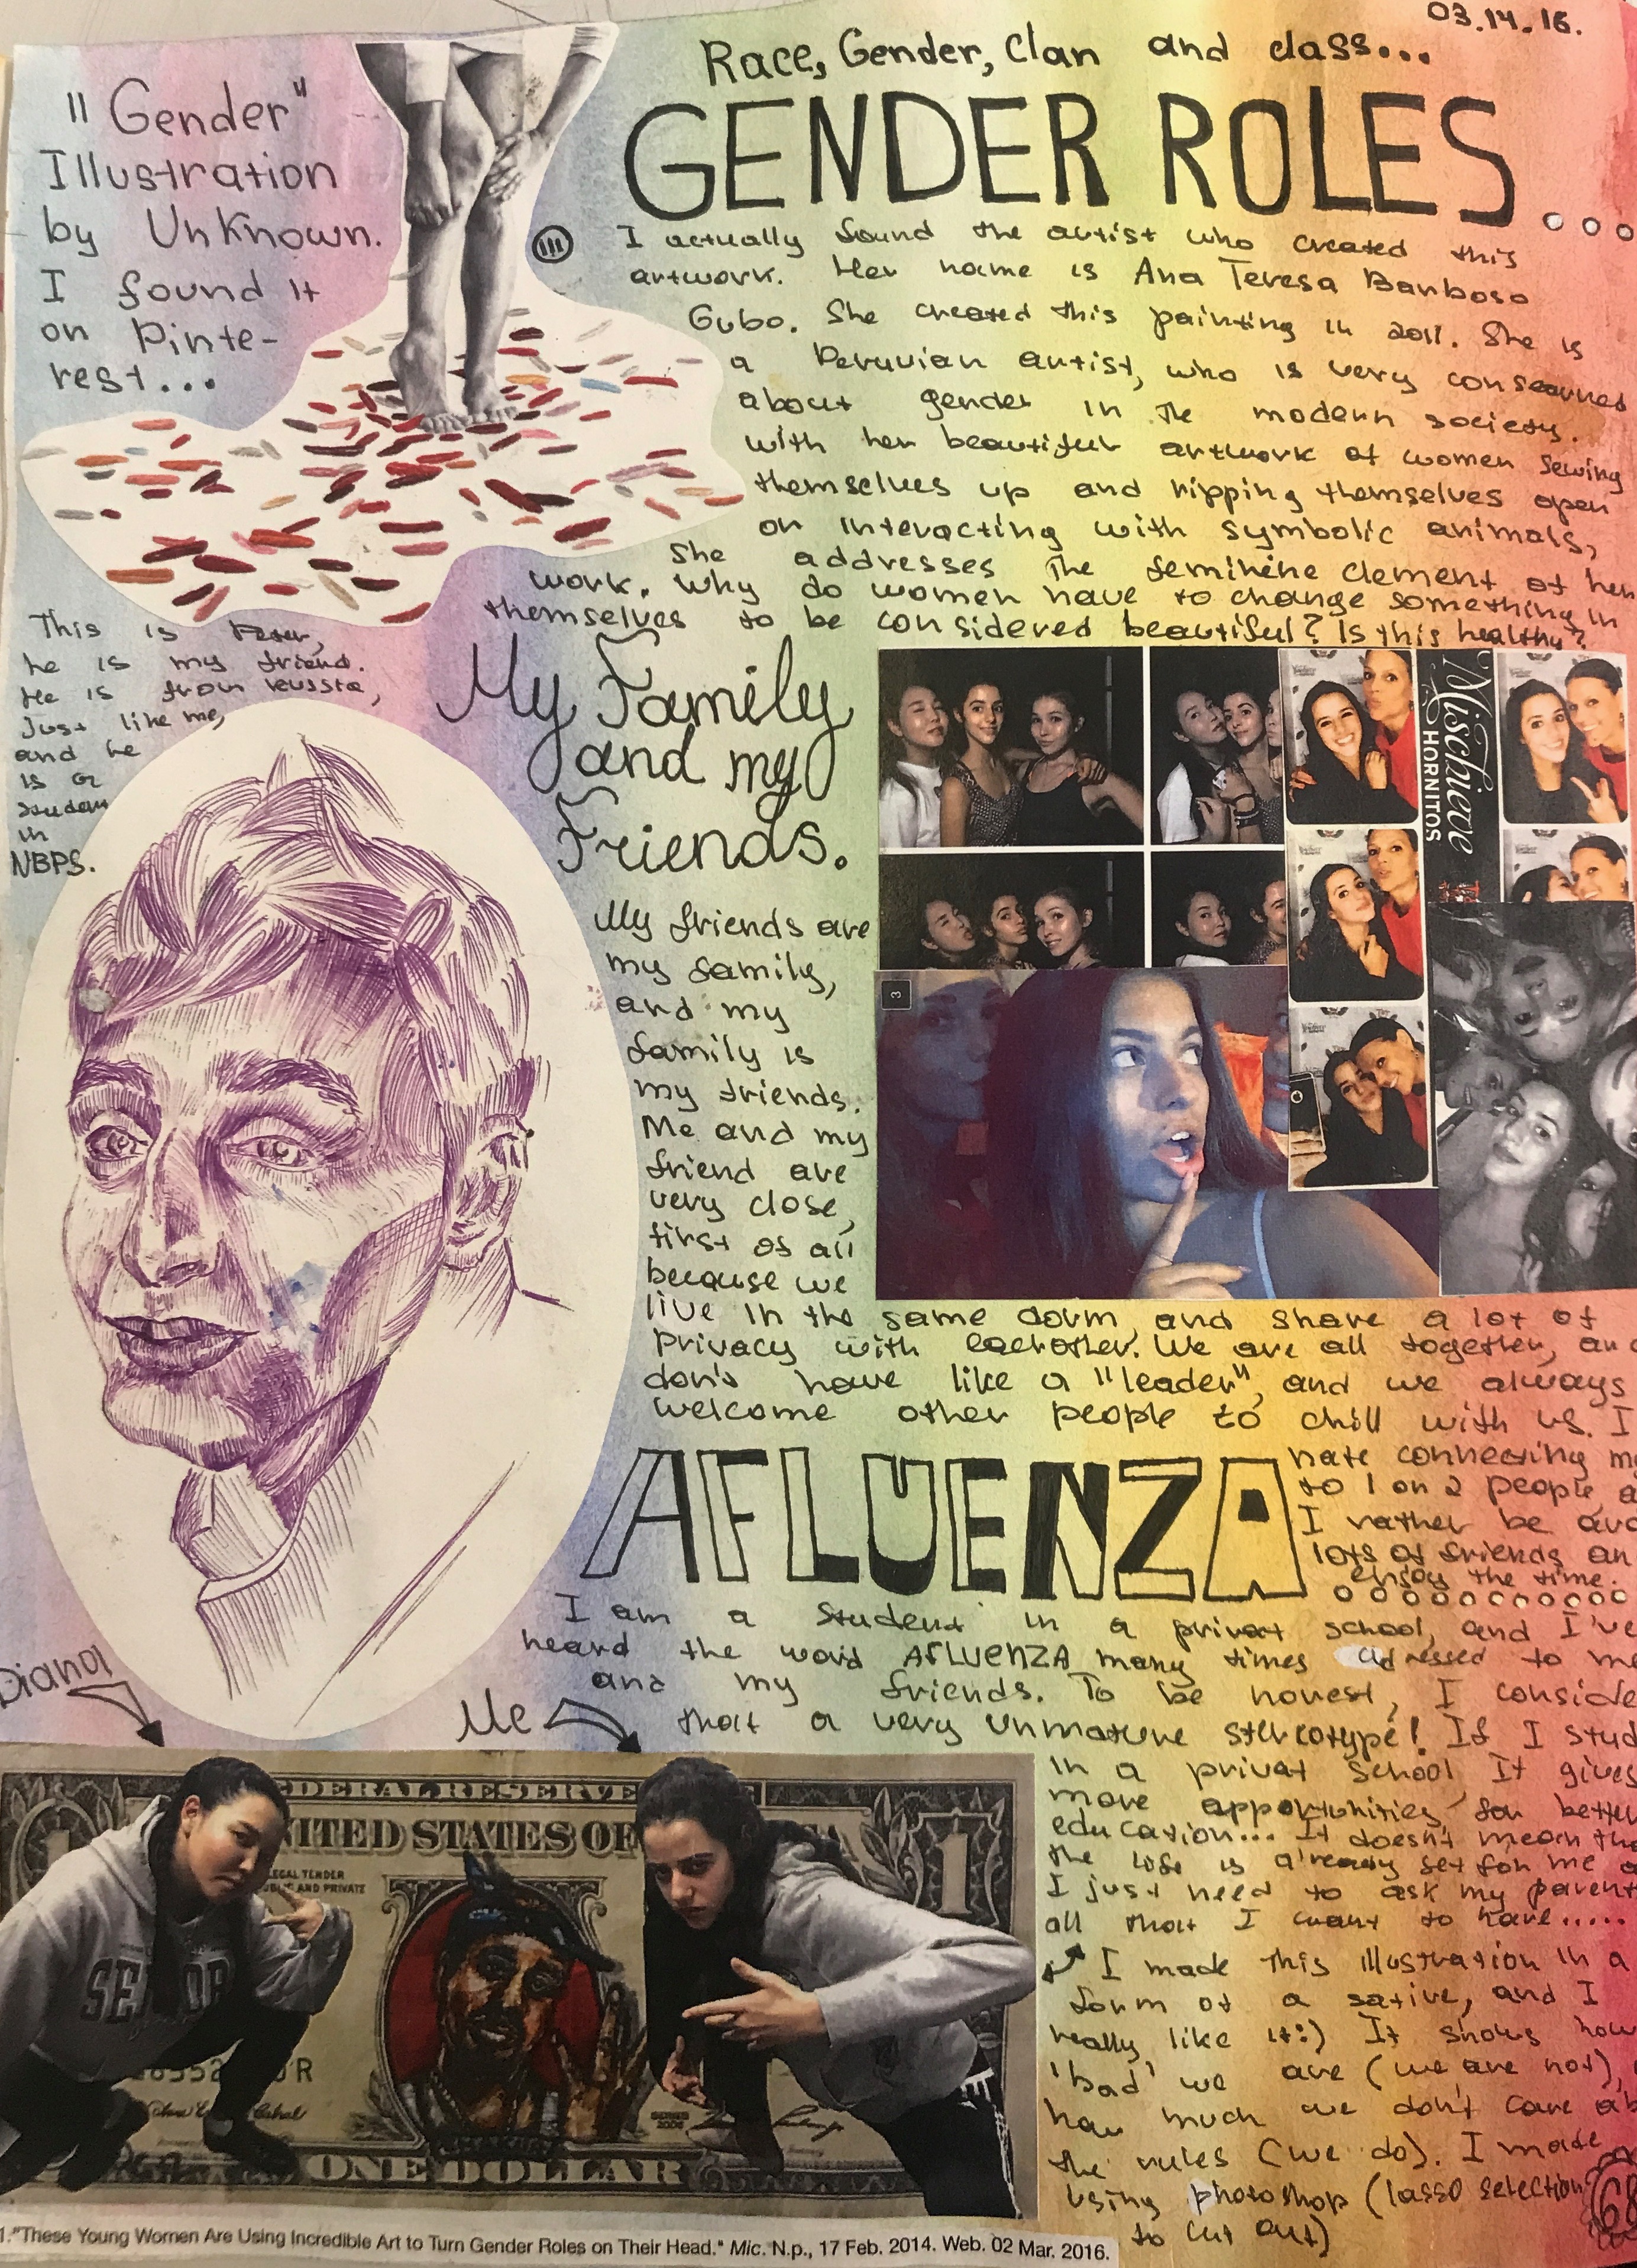 03.14.16.
Race, Gender, Clan and class...
GENDER ROLES...
"Gender"
Illustration
by UnKnown.
I found It
on Pinte-
rest...
I actually found the artist who created this
artwork. Her name is Ana Teresa Barboso
Gubo. She created this painting in 2011. She is
a Peruvian artist, who is very
about gender in the modern society.
with her beautiful artwork of women sewing
themselves up and ripping themselves open
or interacting with symbolic animals,
she addresses the feminine element of her
work. Why do women have to change something in
themselves to be considered beautiful? Is this healthy?
This is Peter,
he is my friend.
He is from Russia,
Just like me,
and he
is a
student
in
NBPS.
My Family
and my
Friends.
My friends are
my family,
and my
family is
my friends.
Me and my
friend are
very close,
first of all
because we
live in the same dorm, and share a lot of
privacy with eachother. We are all together, an
don't have like a "leader", and we always
welcome other people to chill with us. I
hate connecting my
to 1 or 2 people, a
I rather be
lots of friends an
enjoy the time.
Mischieve
HORNITOS
3
AFLUENZA
I am a student in a privat school, and I've
heard the word AFLUENZA many times adressed to me
and my friends. To be honest, I conside
that a very unmature stereotype! If I stud
in a privat school It gives
more apportunities for better
education... It doesn't mean tha
the life is already set for me a
I just need to ask my parent
all that I want to have.....
I made this illustration in a
form of a satire, and I
really like it:) It shows how
'bad' we are (we are not),
how much we don't care ab
the rules (we do). I made
using photoshop (lasso selection
to cut out)
Diana
Me
FEDERAL RESERVE
UNITED STATES OF
LEGAL TENDER
PUBLIC AND PRIVATE
1
SENIOR
SERIES
2006
ONE DOLLAR
1."These Young Women Are Using Incredible Art to Turn Gender Roles on Their Head." Mic. N.p., 17 Feb. 2014. Web. 02 Mar. 2016.